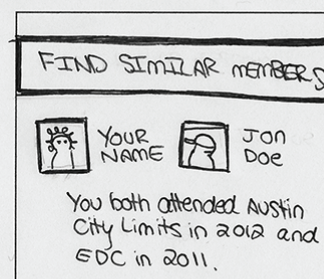 FIND SIMILAR MEMBERS
YOUR NAME
JON DOE
You both attended Austin
City Limits in 2012 and
EDC in 2011.